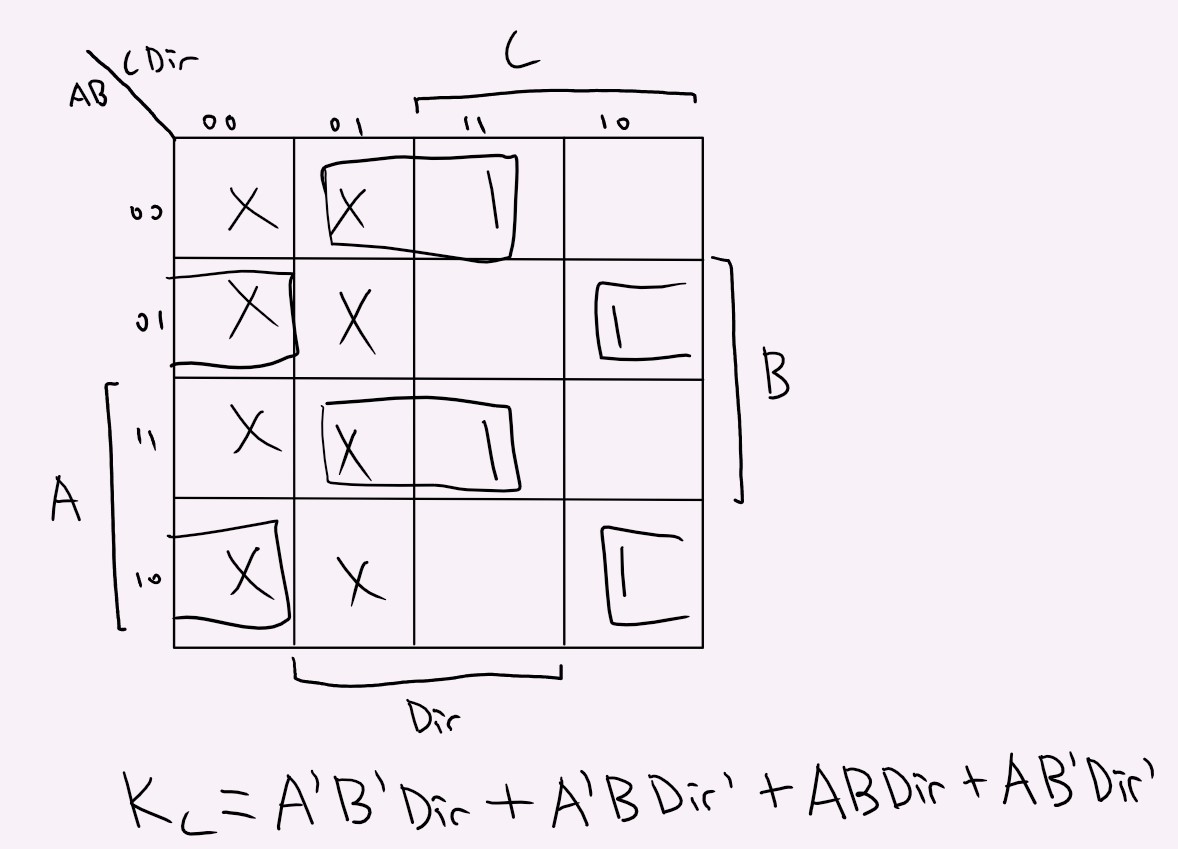 C
C Dir
AB
00 01 11 10
00 X X 1
01 X X 1
B
11 X X 1
A
10 X X 1
Dir
K_C = A'B'Dir + A'BDir' + ABDir + AB'Dir'